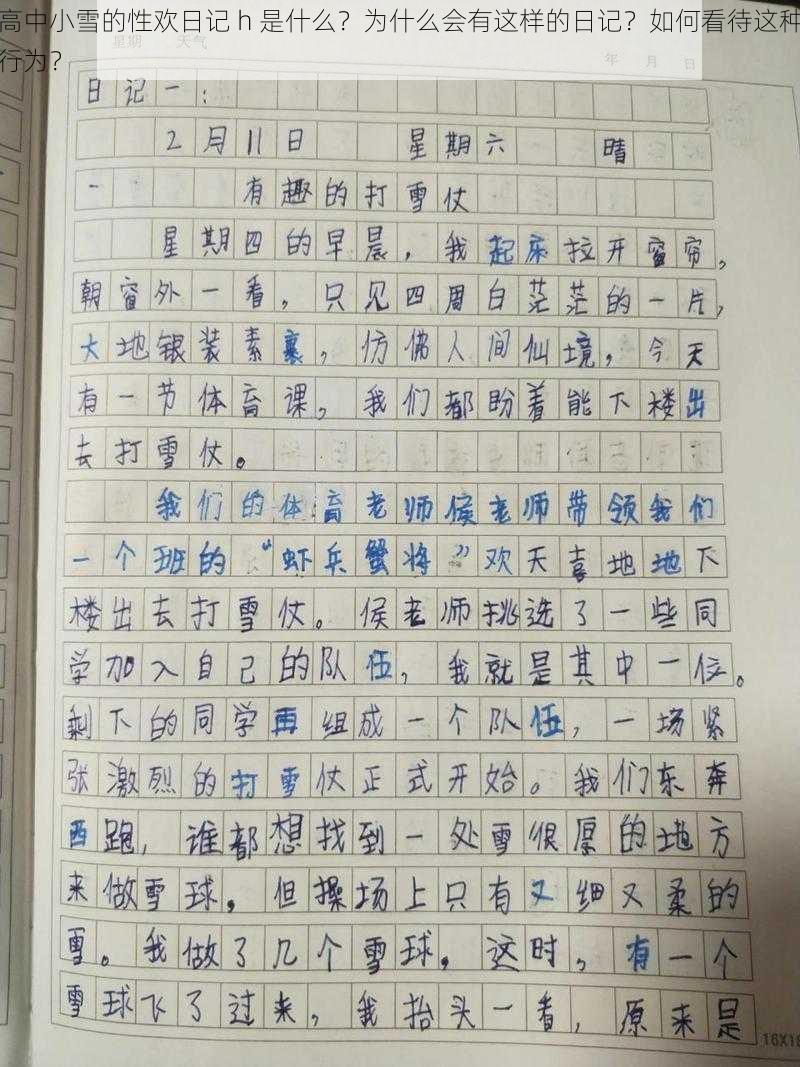 高中小雪的性欢日记 h 是什么？为什么会有这样的日记？如何看待这种
行为？
星期 天气 年 月 日
日记一：
2月11日 星期六 晴
一 有趣的打雪仗
星期四的早晨，我起床拉开窗帘，
朝窗外一看，只见四周白茫茫的一片，
大地银装素裹，仿佛人间仙境，今天
有一节体育课，我们都盼着能下楼出
去打雪仗。
我们的体育老师侯老师带领我们
一个班的“虾兵蟹将”欢天喜地地下
楼出去打雪仗。侯老师挑选了一些同
学加入自己的队伍，我就是其中一位。
剩下的同学再组成一个队伍，一场紧
张激烈的打雪仗正式开始。我们东奔
西跑，谁都想找到一处雪很厚的地方
来做雪球，但操场上只有又细又柔的
雪。我做了几个雪球，这时，有一个
雪球飞了过来，我抬头一看，原来是
16X18